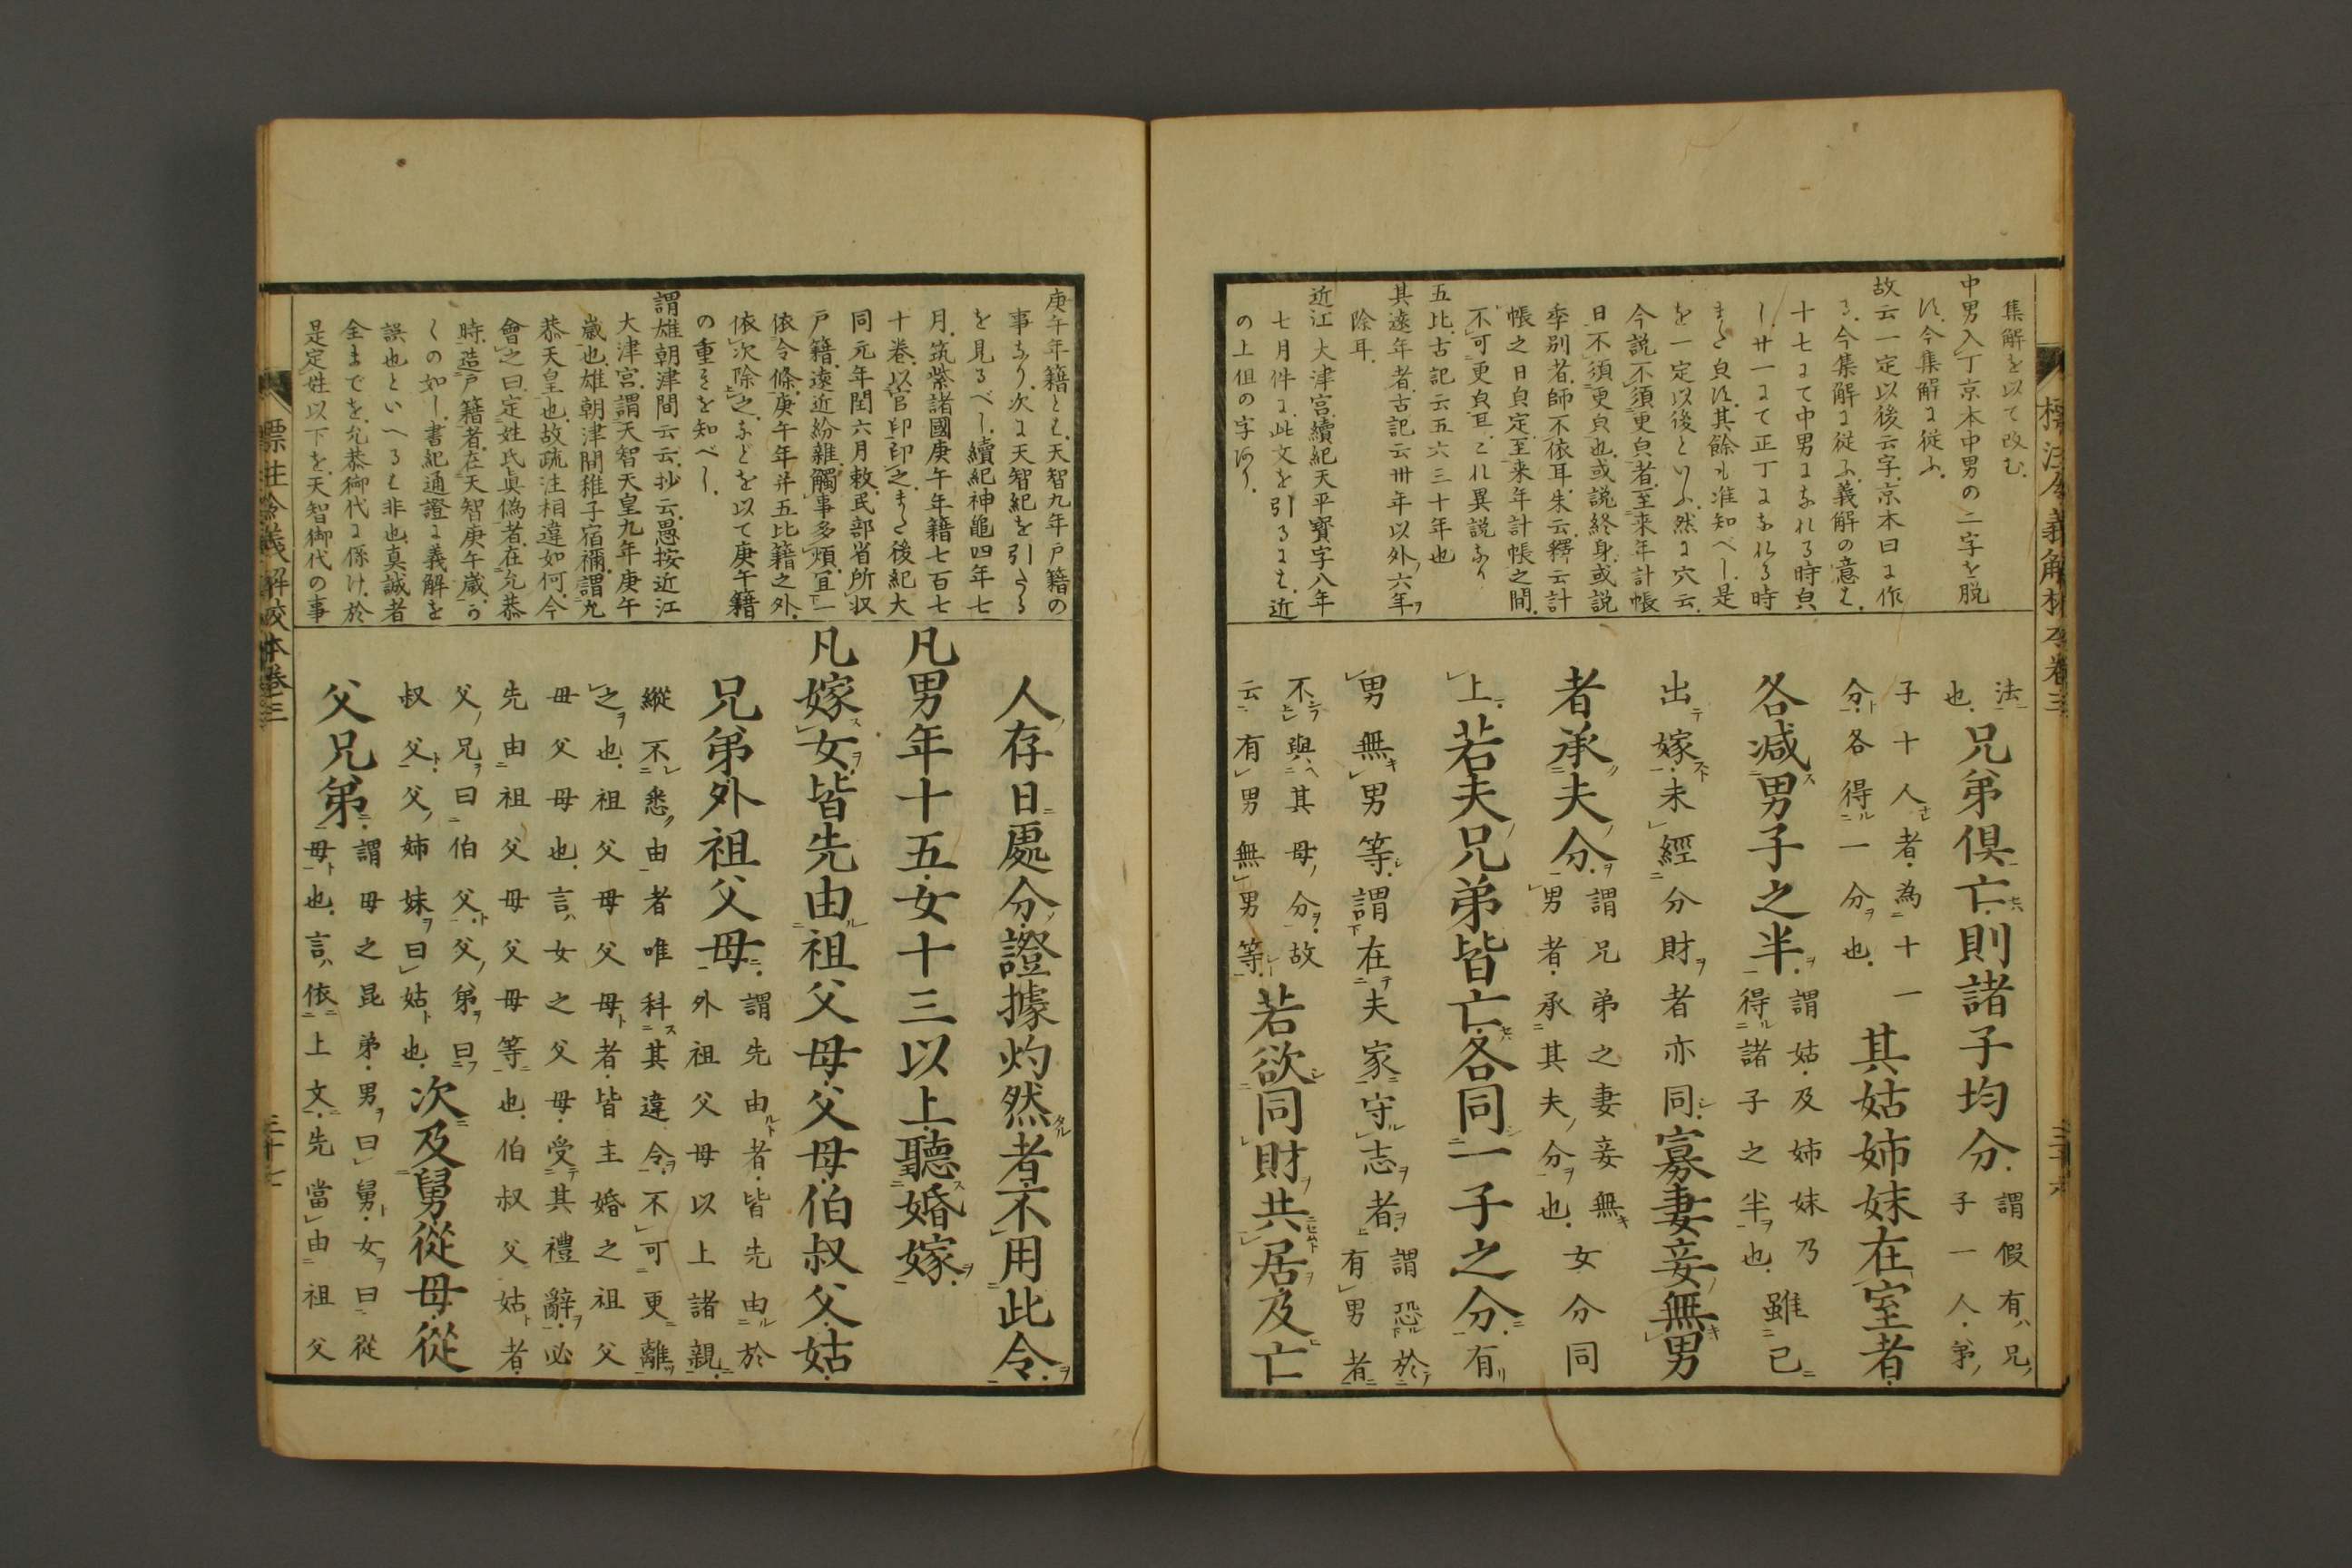 標注令義解校本卷三
集解を以て改む
中男入丁京本中男の二字を脱
故云一定以後云字京本曰に作
る今集解に從ふ義解の意も
十七にて中男になれる時皃
し廿一にて正丁になれる時
また皃す其餘も准知べし是
を一定以後といふ然に穴云
今説不須更皃者至來年計帳
日不須更皃也或説終身或説
季別者師不依耳朱云釋云計
帳之日皃定至来年計帳之間
不可更皃且これ異説なり
五比古記云五六三十年也
其遠年者古記云卅年以外六年
除耳
近江大津宮續紀天平寶字八年
七月件に此文を引るにも近
の上但の字あり
法
也兄弟俱亡則諸子均分謂假有兄
子一人弟
子十人者為十一
分各得一分也其姑姉妹在室者
各減男子之半謂姑及姉妹乃雖已
得諸子之半也
出嫁未經分財者亦同寡妻妾無男
者承夫分謂兄弟之妻妾無
男者承其夫分也女分同
上若夫兄弟皆亡各同一子之分有
男無男等謂在夫家守志者謂恐於
有男者
不與其母分故
云有男無男等若欲同財共居及亡
庚午年籍とは天智九年戸籍の
事なり次に天智紀を引たる
を見るべし續紀神龜四年七
月筑紫諸國庚午年籍七百七
十卷以官印印之また後紀大
同元年閏六月敕民部省所収
戸籍遠近紛雜觸事多煩宜一
依令條庚午年并五比籍之外
依次除之などを以て庚午籍
の重きを知べし
謂雄朝津間云云抄云愚按近江
大津宮謂天智天皇九年庚午
歳也雄朝津間稚子宿禰謂允
恭天皇也故疏注相違如何今
會之曰定姓氏真僞者在允恭
時造戸籍者在天智庚午歳か
くの如し書紀通證に義解を
誤也といへるは非也真誠者
全までを允恭御代に係け於
是定姓以下を天智御代の事
人存日處分證據灼然者不用此令
凡男年十五女十三以上聽婚嫁
凡嫁女皆先由祖父母父母伯叔父姑
兄弟外祖父母謂先由者皆先由於
外祖父母以上諸親
縱不悉由者唯科其違令不可更離
之也祖父母父母者皆主婚之祖父
母父母也言女之父母受其禮辭必
先由祖父母父母等也伯叔父姑者
父兄曰伯父父弟曰
叔父父姉妹曰姑也次及舅從母從
父兄弟謂母之昆弟男曰舅女曰從
母也言依上文先當由祖父
標注令義解校本卷三